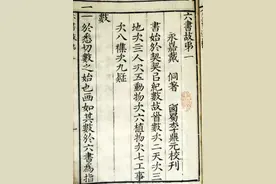 六書故弟一
永嘉戴 侗著 西蜀李鼎元校刊
書始於契契㠯紀數故首數次二天次三
地次亖人次五動物次六植物次七工事
次八襍次九疑
數
一於悉切數之始也画如其數於六書為指